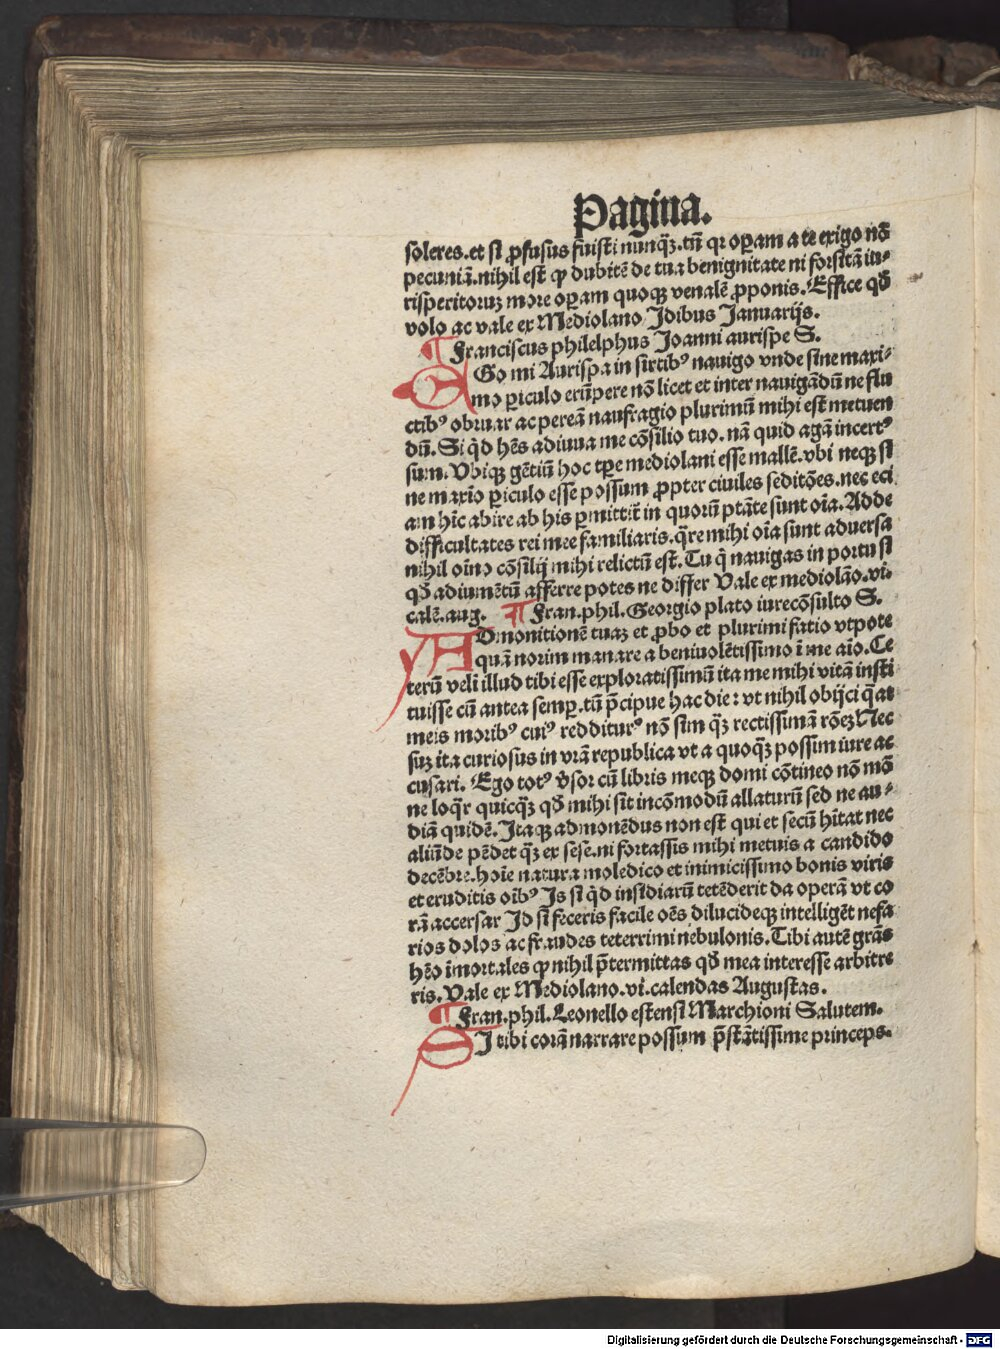 Pagina.
soleres.et si ꝓfusus fuisti nunqꝫ.tñ qr oꝑam a te exigo nõ
pecuniã.nihil est ꝙ dubitẽ de tua benignitate ni forsitã iu-
risperitoruꝫ more oꝑam quoqꝫ venalẽ ꝓponis. Effice qđ
volo ac vale ex Mediolano Idibus Januarijs.
¶ Franciscus philelphus Joanni aurispe S.
EGo mi Aurispa in sirtibꝰ nauigo vnde sine maxi-
mo ꝑiculo erũpere nõ licet et inter nauigãdũ ne flu
ctibꝰ obruar ac pereã naufragio plurimũ mihi est metuen
dũ. Si qͥd hẽs adiuua me cõsilio tuo. nã quid agã incertꝰ
sum. Vbiqꝫ gẽtiũ hoc tꝑe mediolani esse mallẽ. vbi neqꝫ si
ne maxĩo ꝑiculo esse possum ꝓpter ciuiles seditões. nec eci
am hĩc abire ab his ꝑmittit̃ in quorũ ptãte sunt oĩa. Adde
difficultates rei mee familiaris. q̃re mihi oĩa sunt aduersa
nihil oĩno cõsilij mihi relictũ est. Tu q̃ nauigas in portu si
qđ adiumẽtũ afferre potes ne differ Vale ex mediolão. vi-
calẽ. aug. ¶ Fran. phil. Georgio plato iurecõsulto S.
ADmonitionẽ tuaꝫ et ꝓbo et plurimi fatio vtpote
quã norim manare a beniuolẽtissimo ĩ me aĩo. Ce
terũ veli illud tibi esse exploratissimũ ita me mihi vitã insti
tuisse cũ antea semꝑ. tũ p̃cipue hac die: vt nihil obijci q̃at
meis moribꝰ cuiꝰ redditurꝰ nõ sim qꝫ rectissimã rõeꝫ Nec
suꝫ ita curiosus in vrã republica vt a quoqꝫ possim iure ac
cusari. Ego totꝰ v̾sor cũ libris meqꝫ domi cõtineo nõ mõ
ne loq̃r quicqꝫ qđ mihi sit incõmodũ allaturũ sed ne au-
diã quidẽ. Itaqꝫ admonẽdus non est qui et secũ hĩtat nec
aliũde pẽdet qꝫ ex sese. ni fortassis mihi metuis a candido
decẽbre. hoĩe natura moledico et inimicissimo bonis viris
et eruditis oĩbꝰ Is si qͥd insidiarũ tetẽderit da operã vt co
rã accersar Id si feceris facile oẽs dilucideqꝫ intelligẽt nefa
rios dolos ac fraudes teterrimi nebulonis. Tibi autẽ grãs
hẽo ĩmortales ꝙ nihil p̃termittas qđ mea interesse arbitre
ris. Vale ex Mediolano. vi. calendas Augustas.
¶ Fran. phil. Leonello estensi Marchioni Salutem.
SI tibi corã narrare possum p̃stãtissime princeps.
Digitalisierung gefördert durch die Deutsche Forschungsgemeinschaft - DFG